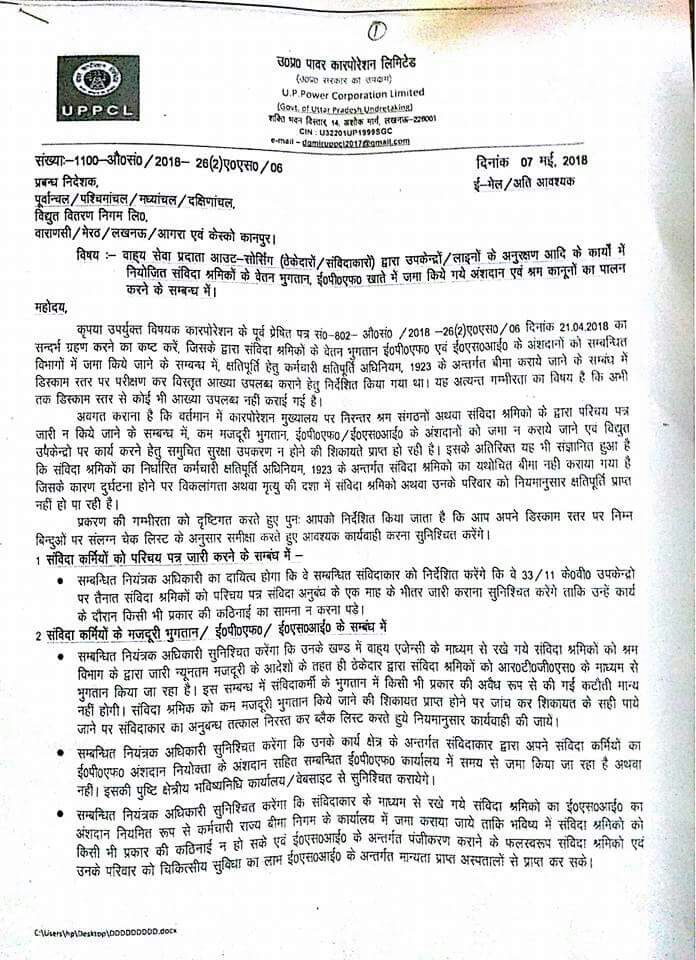 1
उ०प्र० पावर कारपोरेशन लिमिटेड
(उ०प्र० सरकार का उपक्रम)
U.P.Power Corporation Limited
(Govt. of Uttar Pradesh Undretaking)
शक्ति भवन विस्तार, 14, अशोक मार्ग, लखनऊ-226001
CIN : U32201UP1999SGC
e-mail - dgmiruppcl2017@gmail.com
UPPCL
संख्याः-1100-औ०सं०/2018- 26(2)ए०एस०/06 दिनांक 07 मई, 2018
प्रबन्ध निदेशक, ई-मेल/अति आवश्यक
पूर्वान्चल/पश्चिमांचल/मध्यांचल/दक्षिणांचल,
विद्युत वितरण निगम लि०,
वाराणसी/मेरठ/लखनऊ/आगरा एवं केस्को कानपुर।
विषय :- वाह्य सेवा प्रदाता आउट-सोर्सिंग (ठेकेदारों/संविदाकारों) द्वारा उपकेन्द्रों/लाइनों के अनुरक्षण आदि के कार्यो में
नियोजित संविदा श्रमिकों के वेतन भुगतान, ई०पी०एफ० खाते में जमा किये गये अंशदान एवं श्रम कानूनों का पालन
करने के सम्बन्ध में।
महोदय,
कृपया उपर्युक्त विषयक कारपोरेशन के पूर्व प्रेषित पत्र सं०-802- औ०सं० /2018 -26(2)ए०एस०/06 दिनांक 21.04.2018 का
सन्दर्भ ग्रहण करने का कष्ट करें, जिसके द्वारा संविदा श्रमिकों के वेतन भुगतान ई०पी०एफ० एवं ई०एस०आई०के अंशदानों को सम्बन्धित
विभागों में जमा किये जाने के सम्बन्ध में, क्षतिपूर्ति हेतु कर्मचारी क्षतिपूर्ति अधिनियम, 1923 के अन्तर्गत बीमा कराये जाने के सम्बंध में
डिस्काम स्तर पर परीक्षण कर विस्तृत आख्या उपलब्ध कराने हेतु निर्देशित किया गया था। यह अत्यन्त गम्भीरता का विषय है कि अभी
तक डिस्काम स्तर से कोई भी आख्या उपलब्ध नही कराई गई है।
अवगत कराना है कि वर्तमान में कारपोरेशन मुख्यालय पर निरन्तर श्रम संगठनों अथवा संविदा श्रमिको के द्वारा परिचय पत्र
जारी न किये जाने के सम्बन्ध में, कम मजदूरी भुगतान, ई०पी०एफ०/ई०एस०आई० के अंशदानों को जमा न कराये जाने एवं विद्युत
उपकेन्द्रो पर कार्य करने हेतु समुचित सुरक्षा उपकरण न होने की शिकायते प्राप्त हो रही है। इसके अतिरिक्त यह भी संज्ञानित हुआ है
कि संविदा श्रमिकों का निर्धारित कर्मचारी क्षतिपूर्ति अधिनियम, 1923 के अन्तर्गत संविदा श्रमिको का यथोचित बीमा नही कराया गया है
जिसके कारण दुर्घटना होने पर विकलांगता अथवा मृत्यु की दशा में संविदा श्रमिको अथवा उनके परिवार को नियमानुसार क्षतिपूर्ति प्राप्त
नहीं हो पा रही है।
प्रकरण की गम्भीरता को दृष्टिगत करते हुए पुनः आपको निर्देशित किया जाता है कि आप अपने डिस्काम स्तर पर निम्न
बिन्दुओं पर संलग्न चेक लिस्ट के अनुसार समीक्षा करते हुए आवश्यक कार्यवाही करना सुनिश्चित करेंगे।
1 संविदा कर्मियों को परिचय पत्र जारी करने के सम्बंध में –
• सम्बन्धित नियंत्रक अधिकारी का दायित्व होगा कि वे सम्बन्धित संविदाकार को निर्देशित करेंगे कि वे 33/11 के०वी० उपकेन्द्रो
पर तैनात संविदा श्रमिकों को परिचय पत्र संविदा अनुबंध के एक माह के भीतर जारी कराना सुनिश्चित करेगे ताकि उन्हें कार्य
के दौरान किसी भी प्रकार की कठिनाई का सामना न करना पडे।
2 संविदा कर्मियों के मजदूरी भुगतान/ ई०पी०एफ०/ ई०एस०आई० के सम्बंध में
• सम्बन्धित नियंत्रक अधिकारी सुनिश्चित करेंगा कि उनके खण्ड में वाह्य एजेन्सी के माध्यम से रखे गये संविदा श्रमिकों को श्रम
विभाग के द्वारा जारी न्यूनतम मजदूरी के आदेशों के तहत ही ठेकेदार द्वारा संविदा श्रमिकों को आर०टी०जी०एस० के माध्यम से
भुगतान किया जा रहा है। इस सम्बन्ध में संविदाकर्मी के भुगतान में किसी भी प्रकार की अवैध रूप से की गई कटौती मान्य
नहीं होगी। संविदा श्रमिक को कम मजदूरी भुगतान किये जाने की शिकायत प्राप्त होने पर जांच कर शिकायत के सही पाये
जाने पर संविदाकार का अनुबन्ध तत्काल निरस्त कर ब्लैक लिस्ट करते हुये नियमानुसार कार्यवाही की जाये।
• सम्बन्धित नियंत्रक अधिकारी सुनिश्चित करेंगा कि उनके कार्य क्षेत्र के अन्तर्गत संविदाकार द्वारा अपने संविदा कर्मियों का
ई०पी०एफ० अंशदान नियोक्ता के अंशदान सहित सम्बन्धित ई०पी०एफ० कार्यालय में समय से जमा किया जा रहा है अथवा
नही। इसकी पुष्टि क्षेत्रीय भविष्यनिधि कार्यालय/वेबसाइट से सुनिश्चित करायेगे।
• सम्बन्धित नियंत्रक अधिकारी सुनिश्चित करेगा कि संविदाकार के माध्यम से रखे गये संविदा श्रमिकों का ई०एस०आई० का
अंशदान नियमित रूप से कर्मचारी राज्य बीमा निगम के कार्यालय में जमा कराया जाये ताकि भविष्य में संविदा श्रमिकों को
किसी भी प्रकार की कठिनाई न हो सके एवं ई०एस०आई० के अन्तर्गत पंजीकरण कराने के फलस्वरूप संविदा श्रमिको एवं
उनके परिवार को चिकित्सीय सुविधा का लाभ ई०एस०आई० के अन्तर्गत मान्यता प्राप्त अस्पतालों से प्राप्त कर सके।
C:\Users\hp\Desktop\DDDDDDDDD.docx